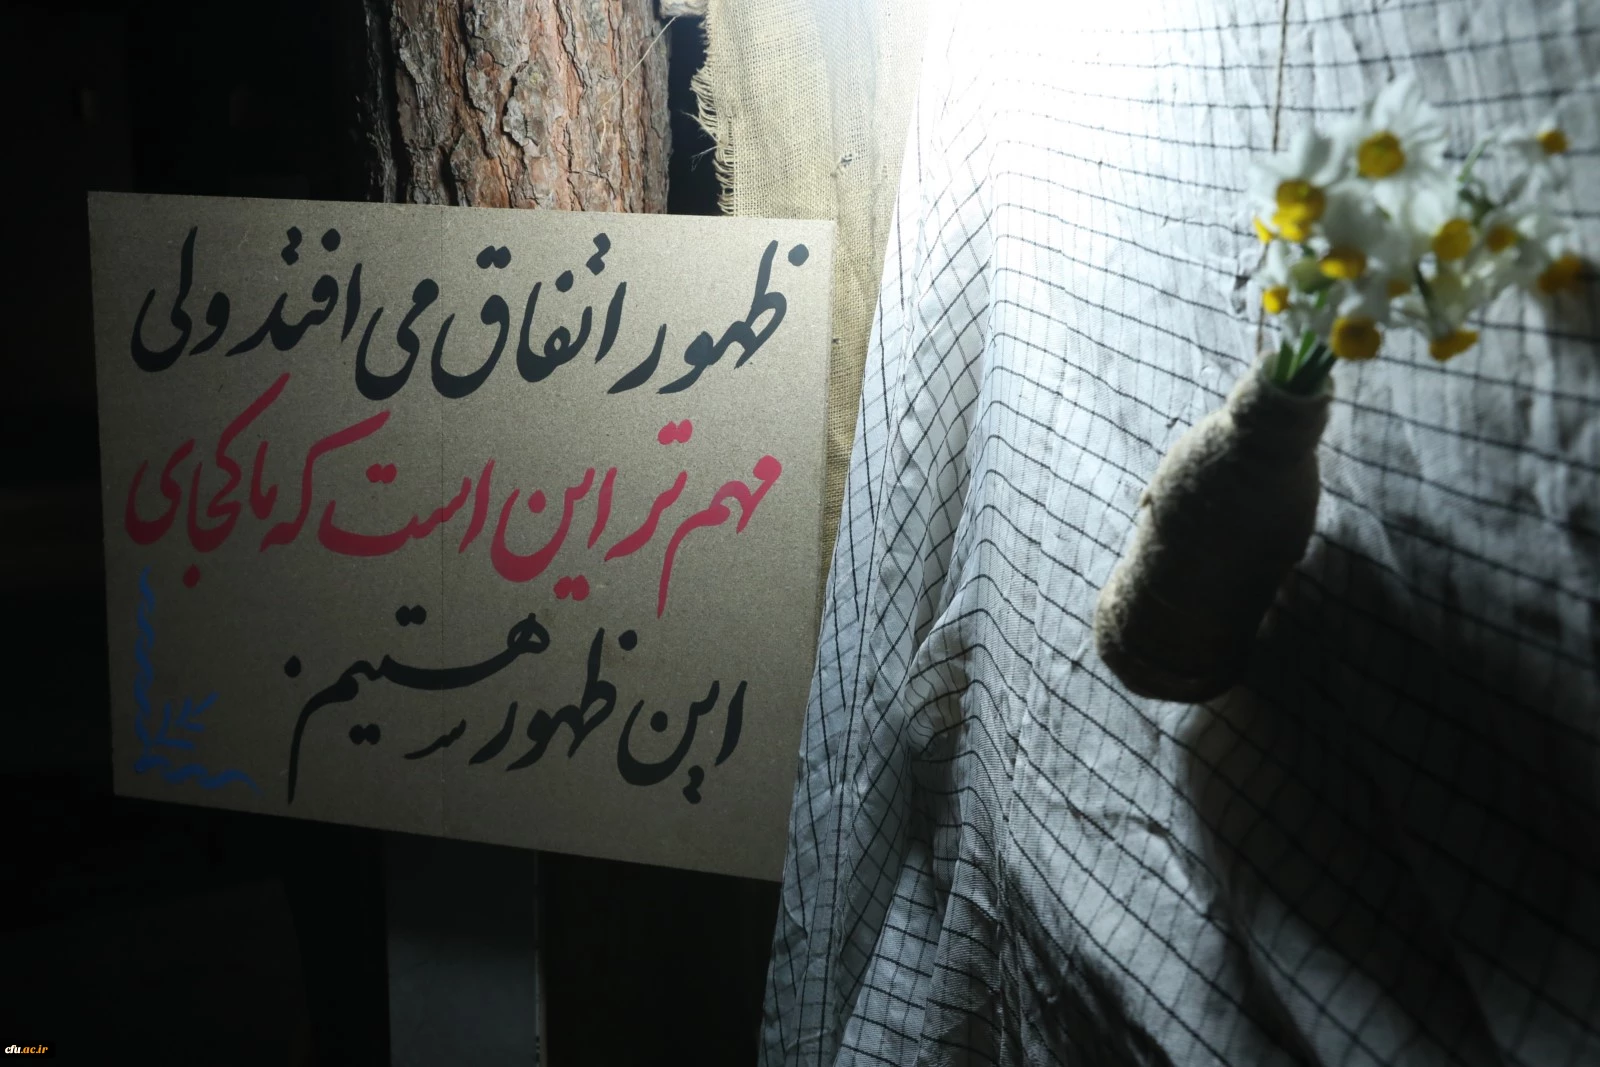 ظهور اتفاق می افتد ولی
مهم تر این است که ما کجای
این ظهور هستیم.
cfu.ac.ir